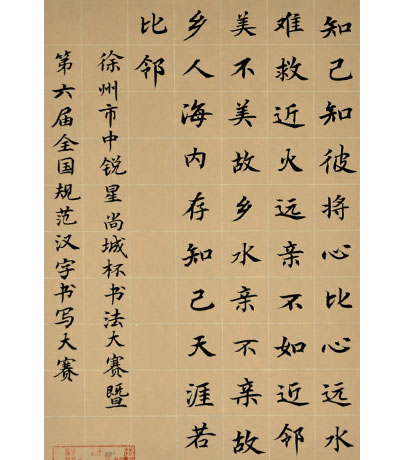 知己知彼将心比心远水
难救近火远亲不如近邻
美不美故乡水亲不亲故
乡人海内存知己天涯若
比邻
徐州市中锐星尚城杯书法大赛暨
第六届全国规范汉字书写大赛